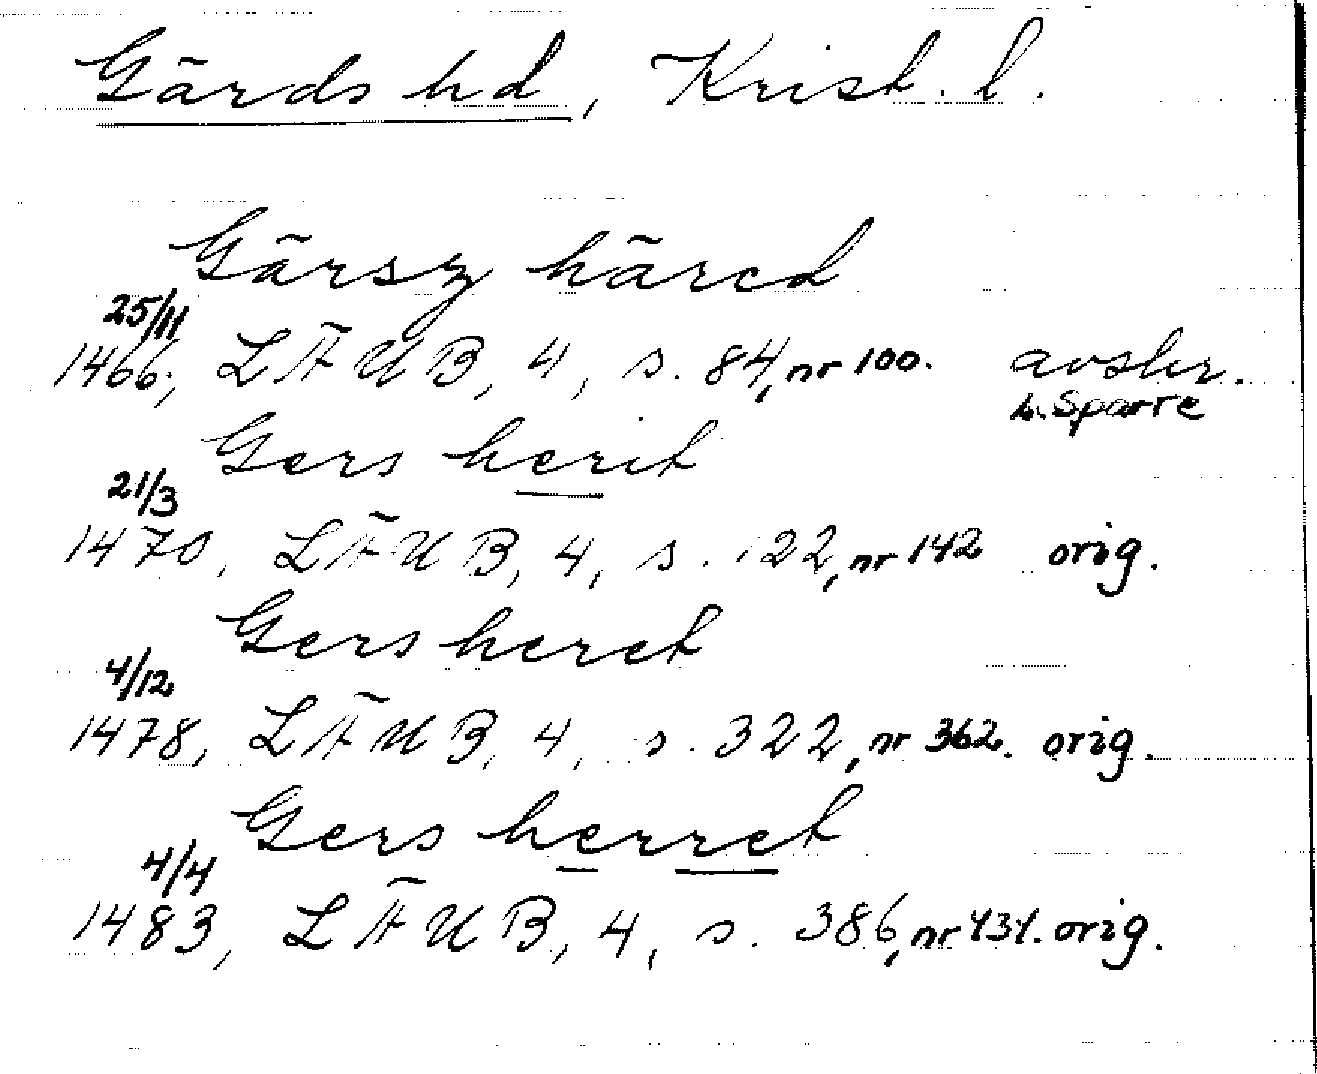 Gärds hd, Krist. l.
Gärsz härcd
25/11
1466, LÄUB, 4, s. 84, nr 100. avskr.
h. Sparre
Gers herit
21/3
1470, LÄUB, 4, s. 122, nr 142 orig.
Gers heret
4/12
1478, LÄUB, 4, s. 322, nr 362. orig.
Gers herret
4/4
1483, LÄUB, 4, s. 386, nr 431. orig.